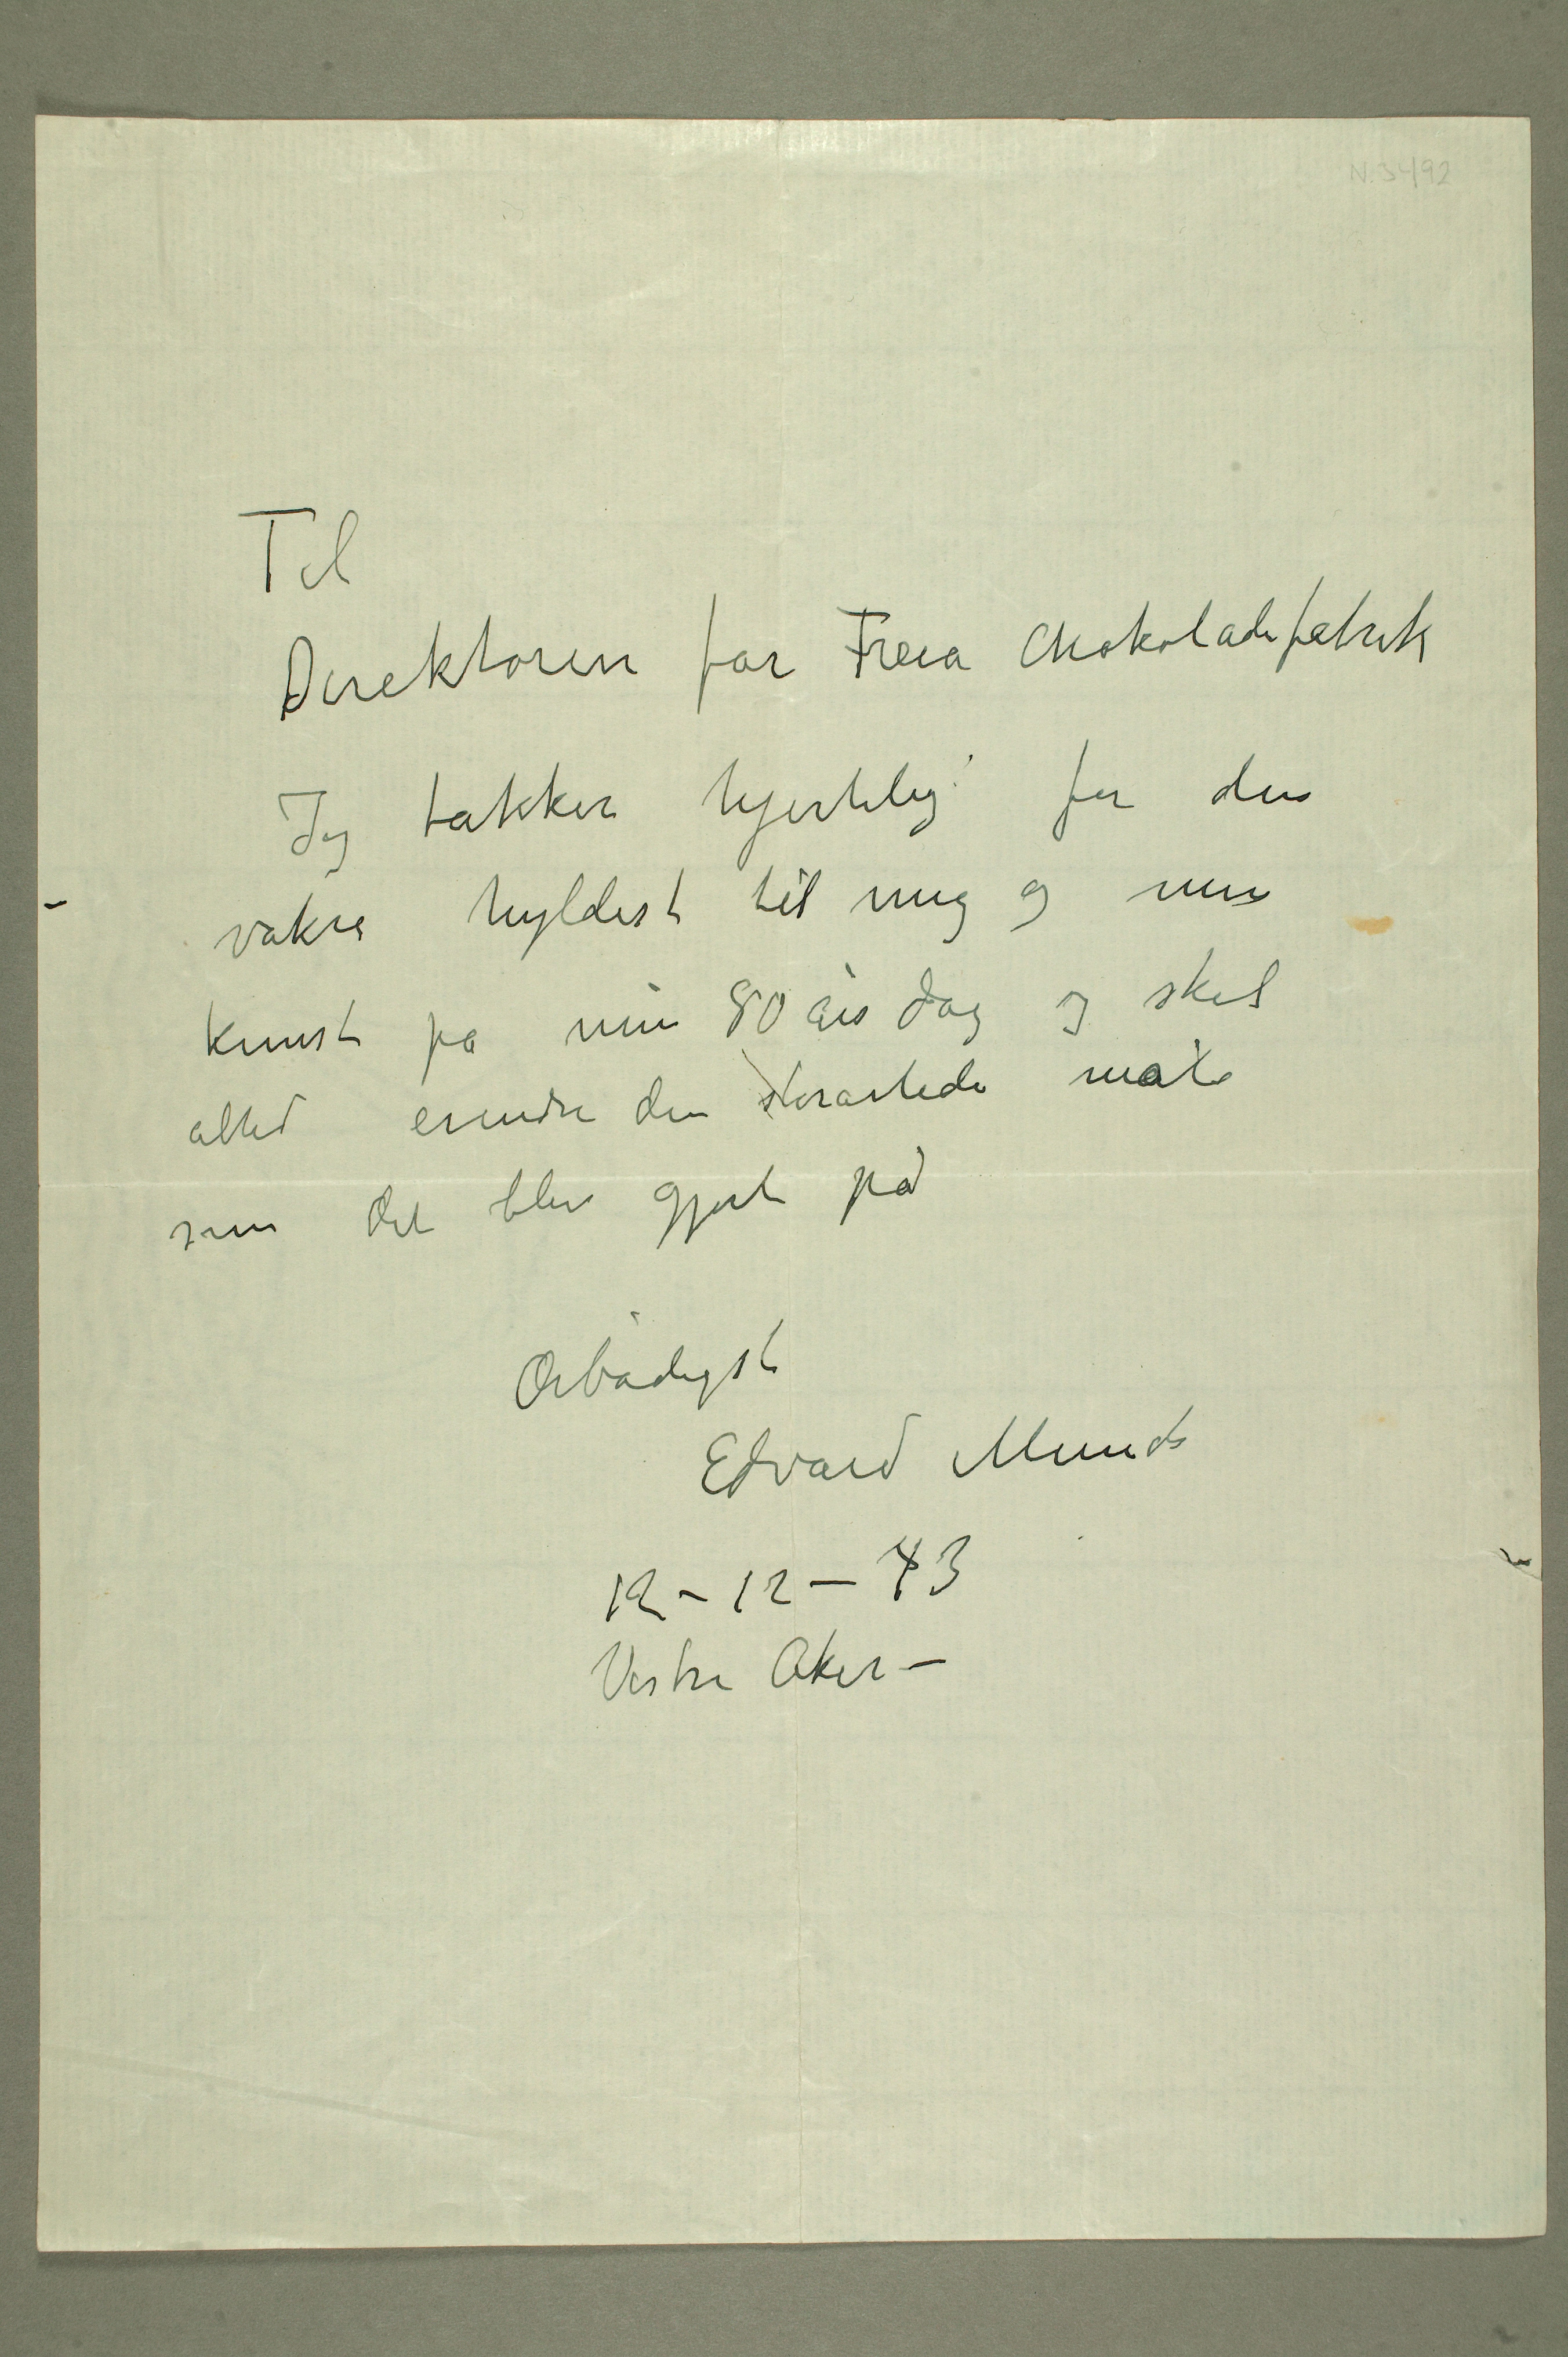 N.3492
Til
Direktøren for Freia Chokoladefabrik
Jeg takker hjertelig for den
vakre hyldest til mig og min
kunst på min 80 års dag og skal
altid erindre den storartede måte
som det blev gjort på
Ærbødigst
Edvard Munch
12-12-43
Vestre Aker-